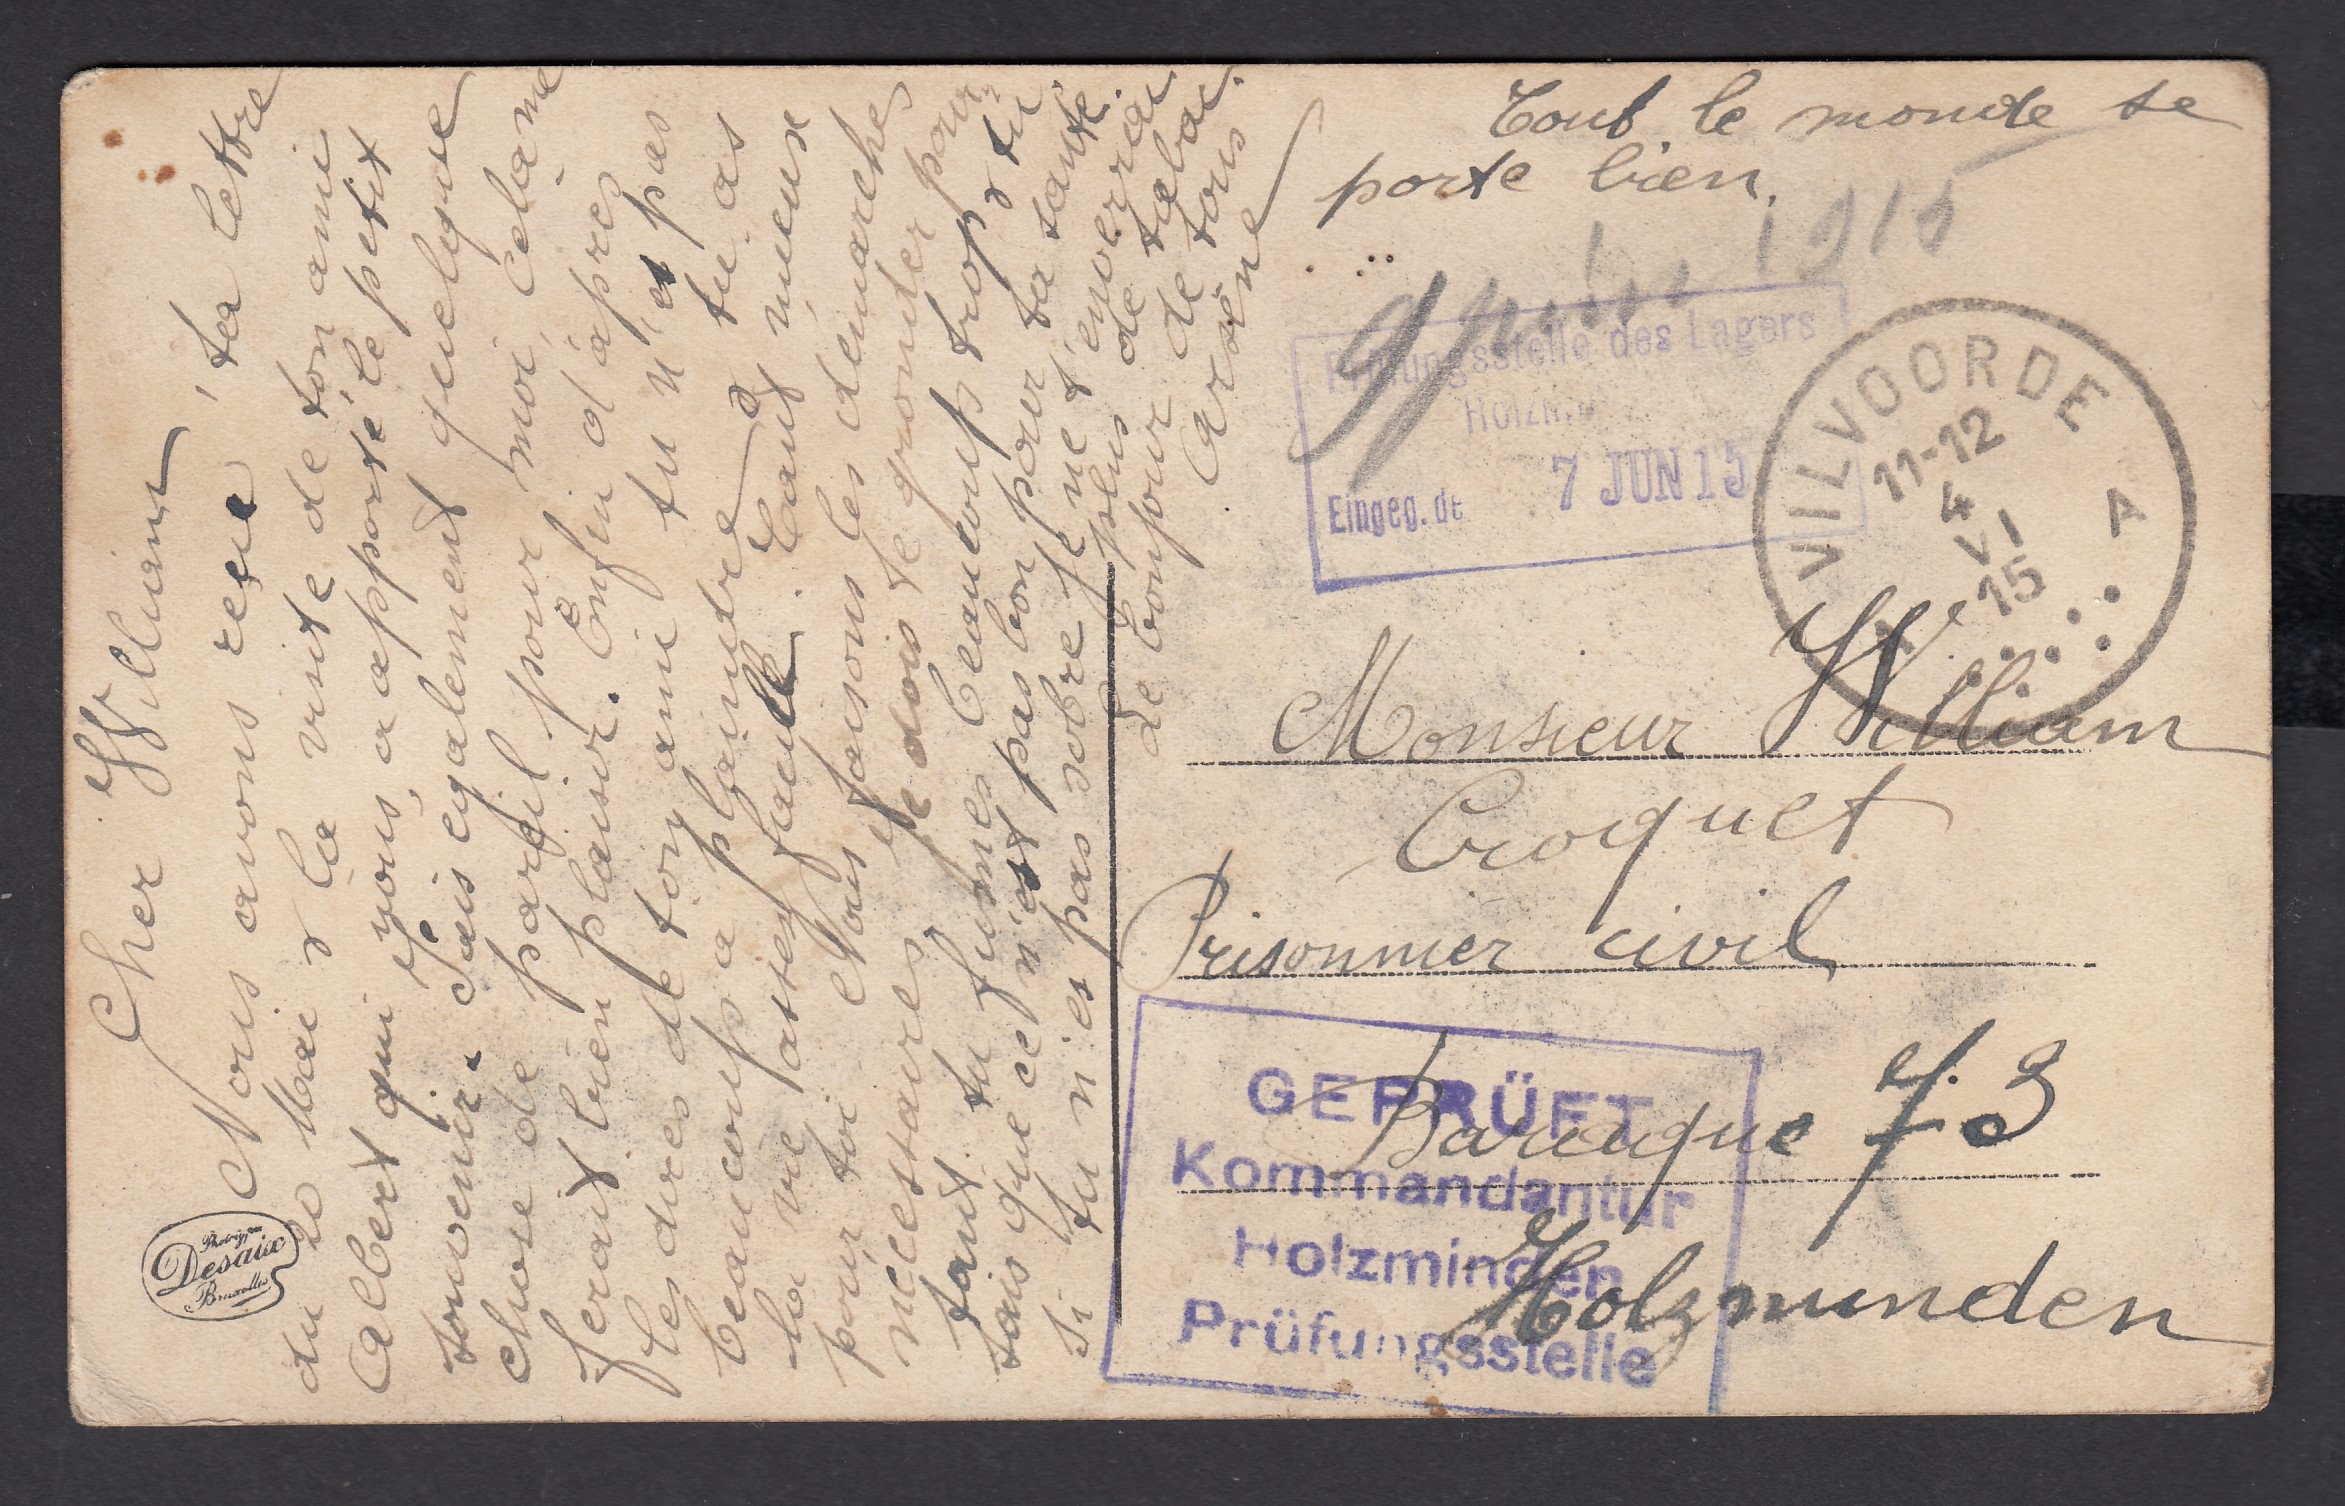 Cher William
Nous avons reçu ta lettre
du 20 Mai & la visite de ton ami
Albert qui nous a apporté le petit
souvenir. Fais egalement quelque
chose de pareil pour moi, cela me
ferait bien plaisir. Enfin d'après
les dires de ton ami tu n'es pas
beaucoup a plaindre tu as
la vie assez facile. Tant mieux
pour toi. Nous faisons les demarches
necessaires. Je dois te gronder pour
tant tu fumes beaucoup trop & tu
sais que ce n'est pas bon pour ta santé.
si tu n'es pas sobre je ne t'enverrai
plus de tabac.
Le bonjour de tous
Arsène
Tout le monde se
porte bien.
9 juin 1915
Prüfungsstelle des Lagers
Holzm
Eingeg. de 7 JUN 15
VILVOORDE
11-12
4
VI
15
A
Monsieur William
Croquet
Prisonnier civil
Baraque 73
Holzminden
GEPRÜFT
Kommandantur
Holzminden
Prüfungsstelle
Desaix
Bruxelles